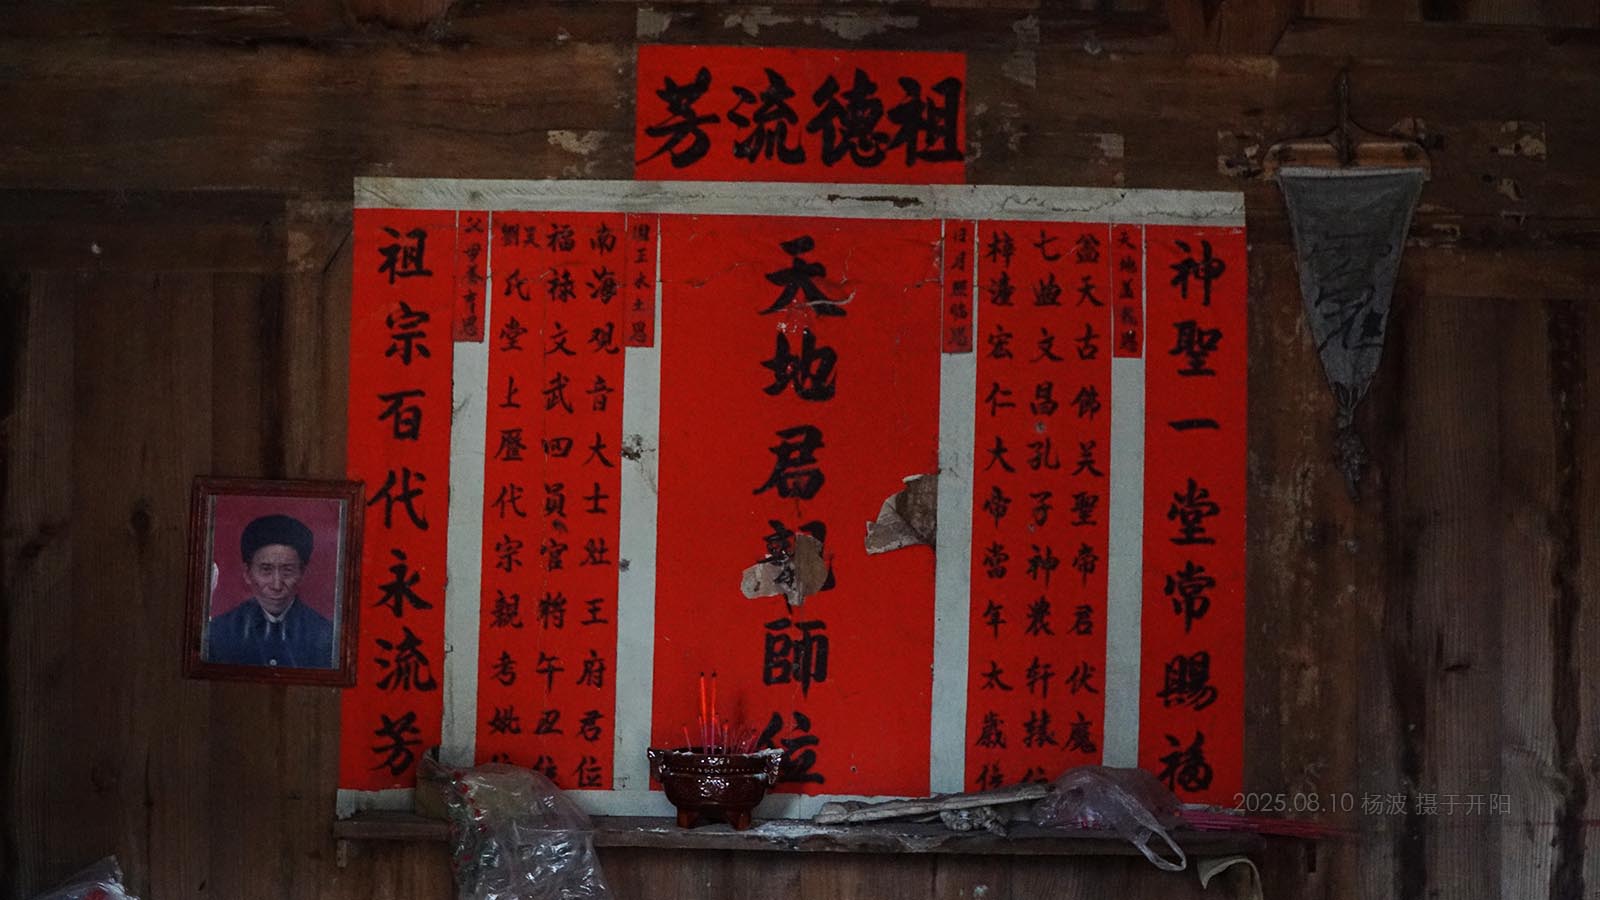 祖德流芳
神聖一堂常賜福
天地蓋載恩
盆天古佛关聖帝君伏魔
七曲文昌孔子神農轩辕位
梓潼宏仁大帝當年太歲位
日月照临恩
天地君親師位
国王水土恩
南海观音大士灶王府君位
福禄文武四員官将午丑位
劉吴氏堂上歷代宗親考妣位
父母养育恩
祖宗百代永流芳
2025.08.10 杨波 摄于开阳